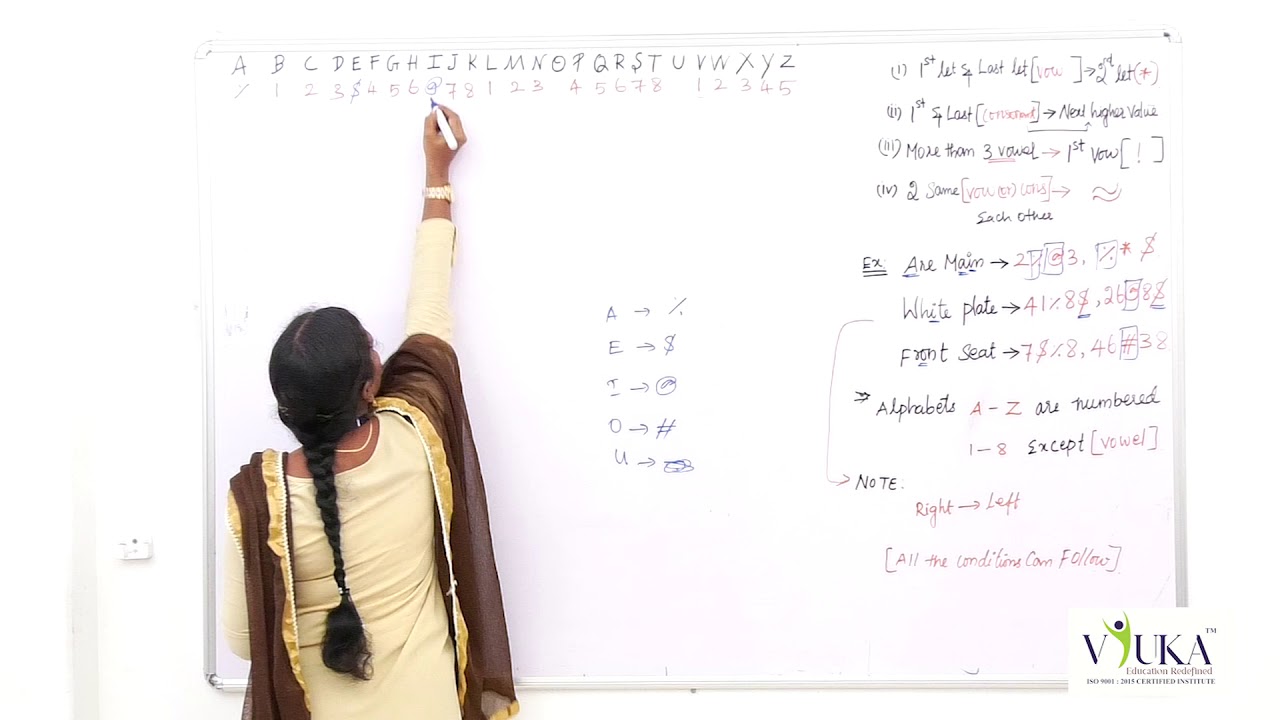 A B C D E F G H I J K L M N O P Q R S T U V W X Y Z
% 1 2 3 $ 4 5 6 @ 7 8 1 2 3 4 5 6 7 8 1 2 3 4 5
(i) 1st let & Last let [vow ] → 2nd let (*)
(ii) 1st & Last [consonant] → Next higher value
(iii) More than 3 vowel → 1st vow [ ! ]
(iv) 2 Same [vow (or) cons] → ≈
Each other
Ex: Are Main → 2 % @ 3, % * $
White plate → 41%8$, 26@8$
Front Seat → 7$%8, 46#38
⇒ Alphabets A - Z are numbered
1 - 8 Except [vowel]
NOTE:
Right → Left
[All the conditions Can Follow]
A → %
E → $
I → @
O → #
U →
VIUKA™
Education Redefined
ISO 9001 : 2015 CERTIFIED INSTITUTE